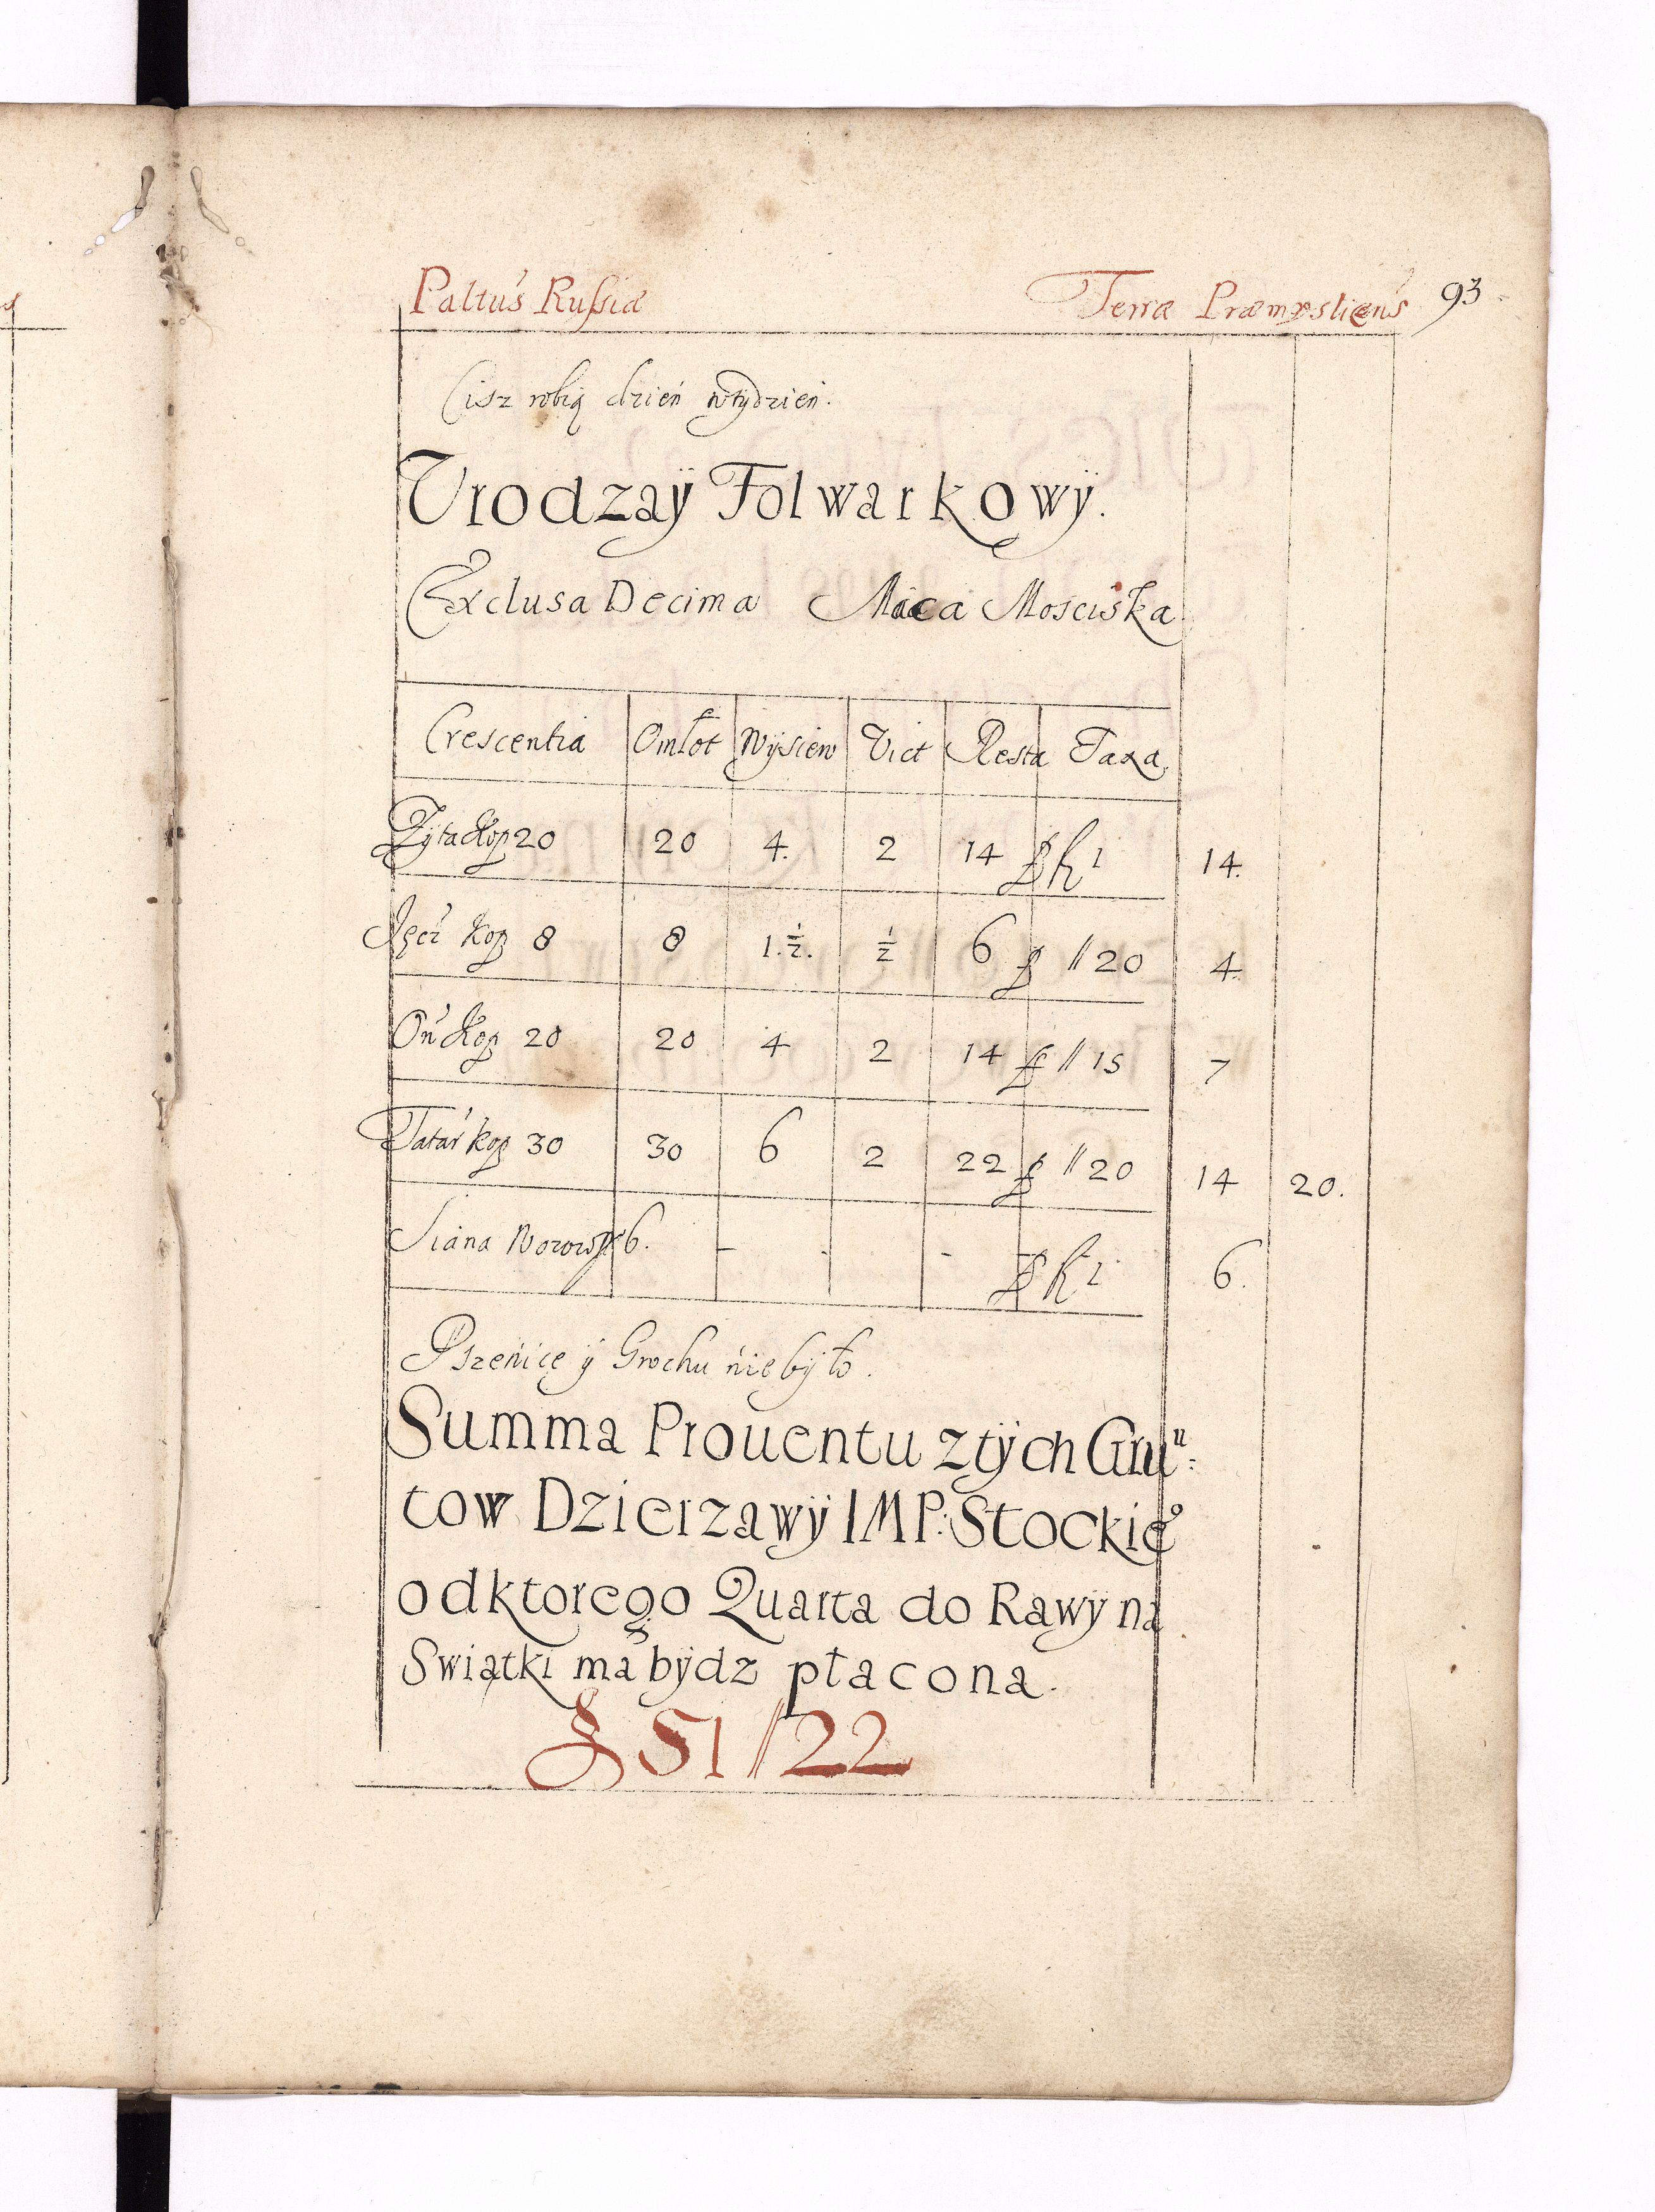 Paltus Russiæ Terræ Præmysliens 93
Cisz robią dzień w tydzień.
Vrodzaÿ Folwarkowÿ.
Exclusa Decima Miaca Mosciska
Crescentia Omłot Wÿsiew Vict Resta Taxa
Zÿta Kop 20 20 4. 2 14 p fl 1 14.
Jęcz Kop 8 8 1.½. ½ 6 p // 20 4.
Ows Kop 20 20 4 2 14 p // 15 7
Tatar kop 30 30 6 2 22 p // 20 14 20.
Siana Wozow 6. - - - p fl 1 6.
Pszenicę ÿ Grochu nie bÿło.
Summa Prouentu z tÿch Gru
tow Dzierzawÿ IMP. Stockie°
od ktorego Quarta do Rawÿ na
Swiątki ma bÿdz płacona.
51 // 22